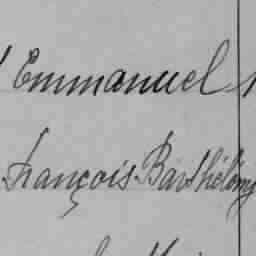 Emmanuel
François Barthélemy